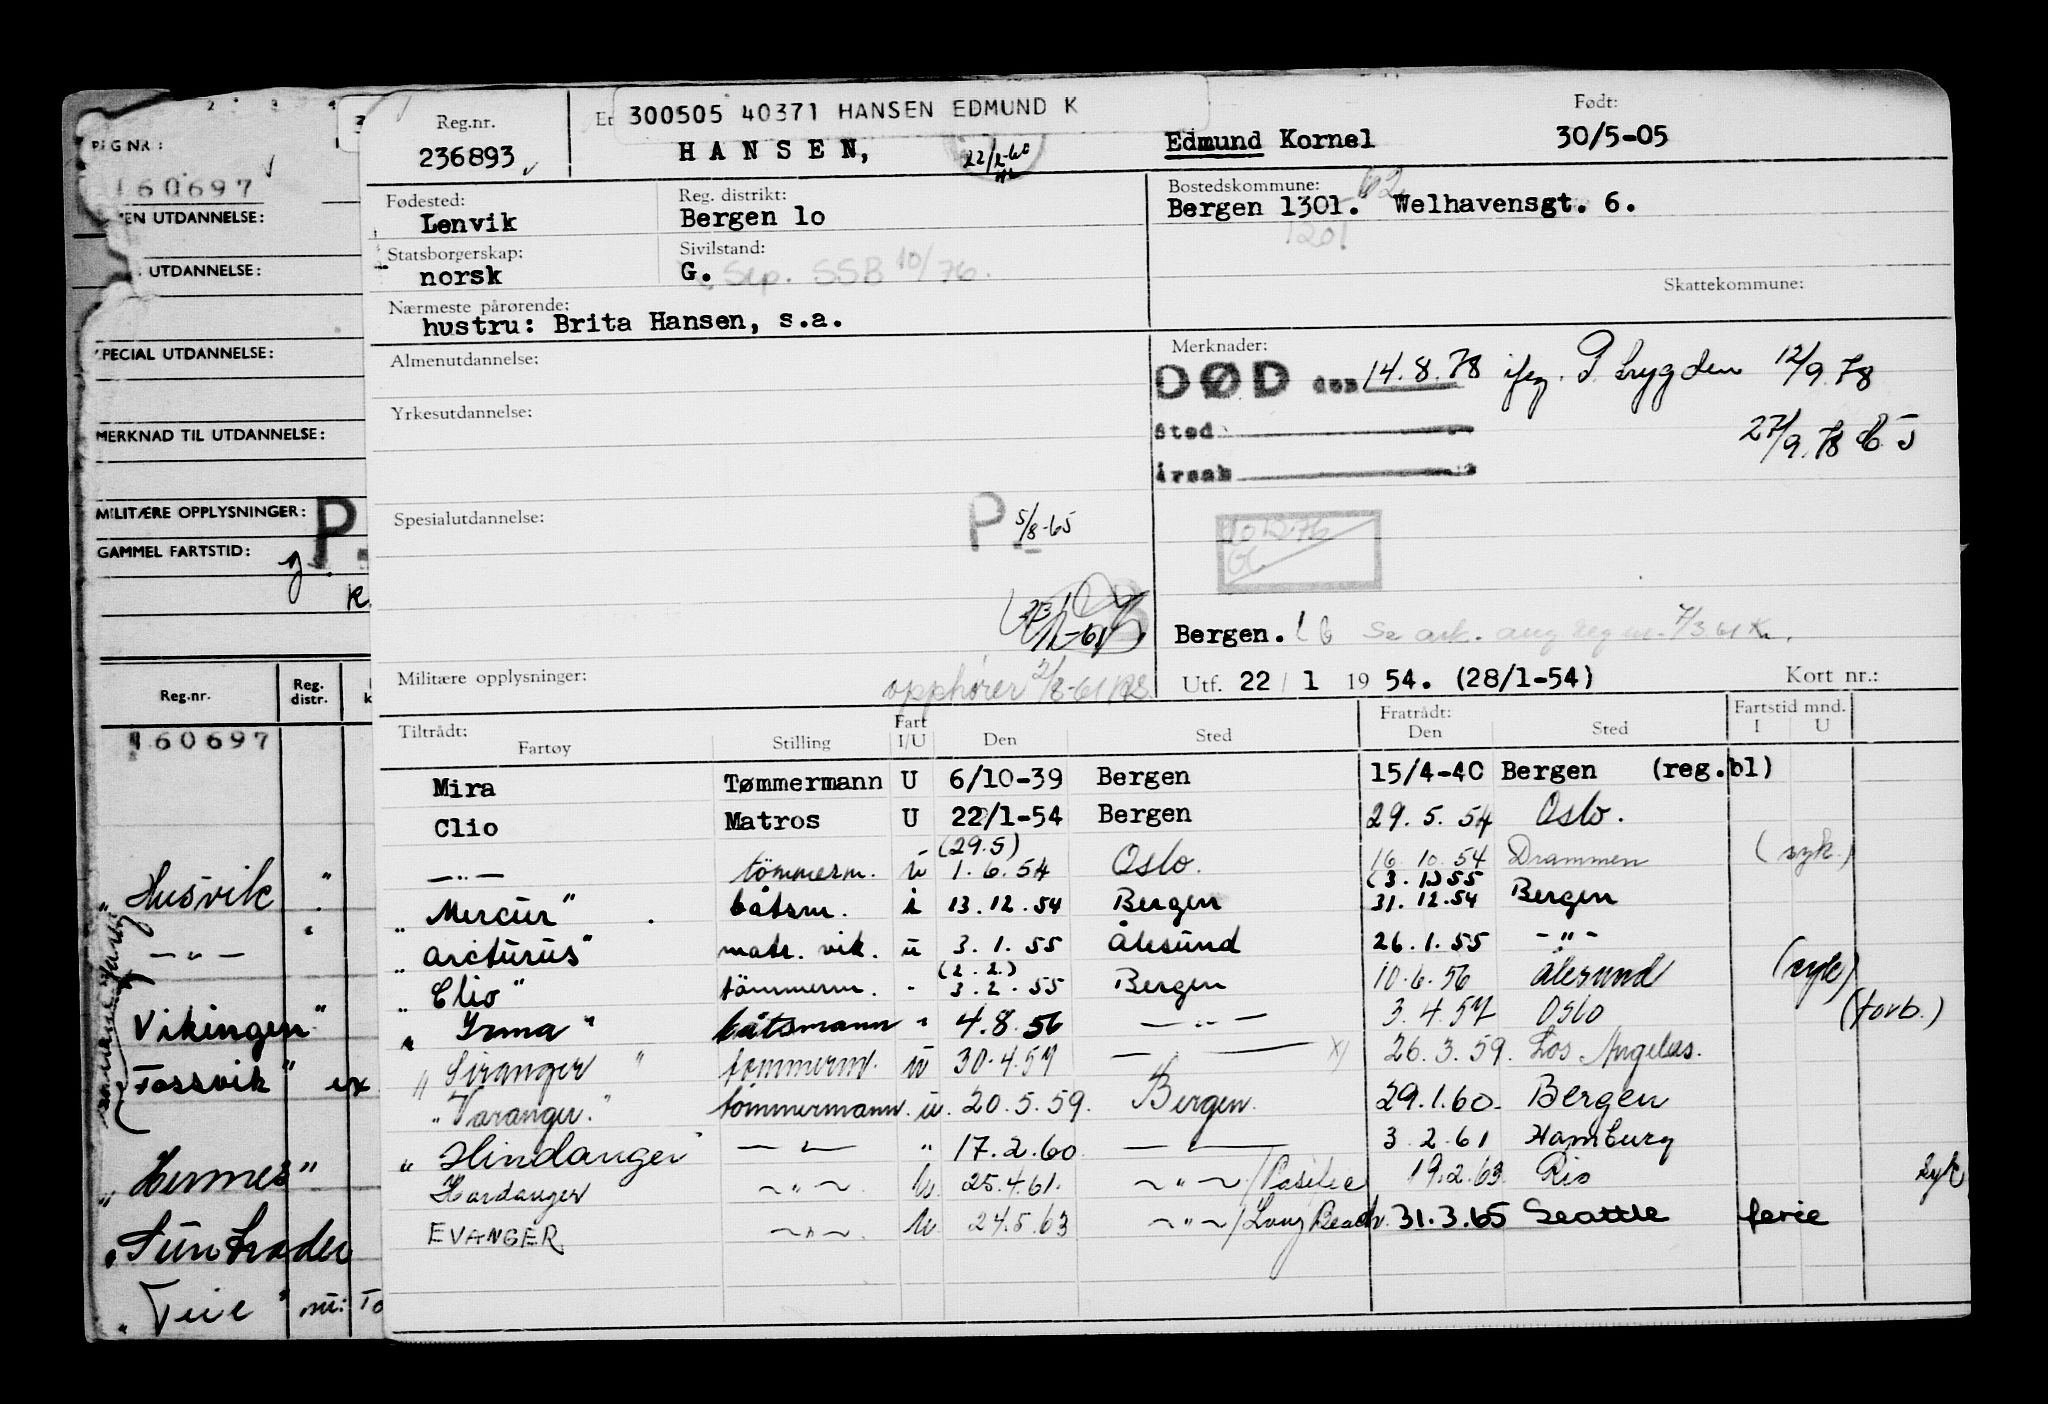 2 3 4
REG NR.:
160697
UTDANNELSE:
UTDANNELSE:
SPECIAL UTDANNELSE:
MERKNAD TIL UTDANNELSE:
MILITÆRE OPPLYSNINGER: P.
GAMMEL FARTSTID:
Reg.nr. Reg. distr.
160697
"Husvik "
— " —
Vikingen"
Fossvik" ex
"Hermes"
"Suntrader
"Teie" nu: To
300505 40371 HANSEN EDMUND K
Reg.nr. Født:
236893 HANSEN, 22/2-60 Edmund Kornel 30/5-05
Fødested: Reg. distrikt: Bostedskommune:
Lenvik Bergen 10 Bergen 1301. Welhavensgt. 6.
1201
Statsborgerskap: Sivilstand:
norsk G. Sep. SSB 10/76.
Skattekommune:
Nærmeste pårørende:
hustru: Brita Hansen, s.a.
Almenutdannelse:
Yrkesutdannelse:
Spesialutdannelse: P. 5/8-65
Militære opplysninger: opphører 2/8-61
Merknader:
DØD den 14.8.78 ifg. P. trygden 12/9.78
Sted
27/9.78
Årsak
10 12.76
Bergen. Se ark. ang reg nr. 7/3 61
Utf. 22 / 1 19 54. (28/1-54) Kort nr.:
Tiltrådt: Fart Fratrådt: Fartstid mnd.
Fartøy Stilling I/U Den Sted Den Sted I U
Mira Tømmermann U 6/10-39 Bergen 15/4-40 Bergen (reg.bl)
Clio Matros U 22/1-54 Bergen 29.5.54 Oslo.
(29.5)
— " — tömmerm. u 1.6.54 Oslo. 16.10.54 Drammen (syk.)
(3.1.55
"Mercur" båtsm. i 13.12.54 Bergen 31.12.54 Bergen
"Arcturus" matr. vik. u 3.1.55 Ålesund 26.1.55 - " -
(2.2.)
"Clio" tömmerm. " 3.2.55 Bergen 10.6.56 Ålesund (syk)
"Irma" båtsmann " 4.8.56 — " — 3.4.57 Oslo (forb.)
"Siranger" tømmerm. u 30.4.57 — " — x) 26.3.59. Los Angeles.
"Varanger." tømmermann. u. 20.5.59. Bergen. 29.1.60. Bergen
"Hindanger — " — " 17.2.60. — " — 3.2.61 Hamburg
Hardanger — " — u. 25.4.61. — " — /Pacific 19.2.63 Rio syk
EVANGER — " — u 24.5.63 — " — /Long Beach. 31.3.65 Seattle ferie